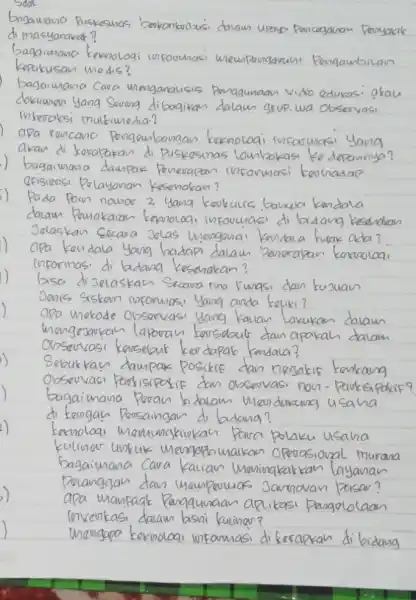 Soal
bagaimana Puskesmas berkontribusi dalam upaya Pencegahan Penyakit
di masyarakat?
bagaimana teknologi informasi mempengaruhi Pengambilan
keputusan medis?
bagaimana cara menganalisis Penggunaan video edukasi atau
dokumen yang sering dibagikan dalam grup wa observasi
interaksi multimedia?
apa rencana Pengembangan teknologi informasi yang
akan di terapkan di Puskesmas Lambakasi ke depannya?
bagaimana dampak Penerapan informasi terhadap
efisiensi Pelayanan kesehatan?
Pada Poin nomor 2 yang tertulis bahwa kendala
dalam Pemakaian teknologi informasi di bidang kesehatan
Jelaskan secara jelas mengenai kendala tidak ada?
apa kendala yang hadapi dalam Penerapan teknologi
informasi di bidang kesehatan?
bisa di jelaskan secara rinci fungsi dan tujuan
Jenis sistem informasi yang anda teliti?
apa metode observasi yang kalian lakukan dalam
mengerjakan laporan tersebut dan apakah dalam
observasi tersebut terdapat kendala?
Sebutkan dampak Positif dan negatif tentang
observasi Partisipatif dan observasi non-Partisipatif?
bagaimana Peran b dalam mendukung usaha
di tengah Persaingan di bidang?
teknologi memungkinkan Para pelaku usaha
kuliner untuk mengoptimalkan operasional murana
bagaimana cara kalian meningkatkan layanan
Pelanggan dan memperluas Jangkauan Pasar?
apa manfaat Penggunaan aplikasi Pengelolaan
inventasi dalam bisni kuliner?
mengapa teknologi informasi di terapkan di bidang